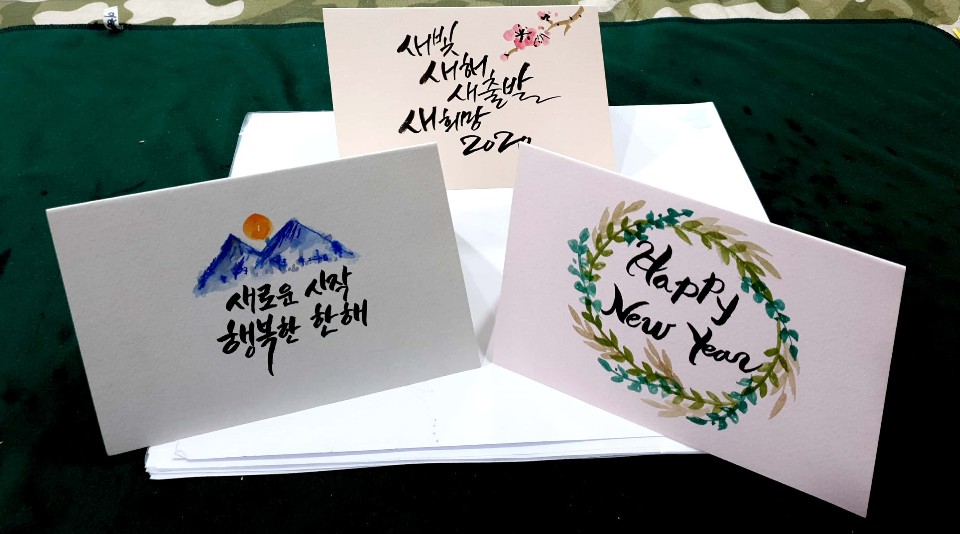 새빛
새해
새출발
새희망
2020
새로운 시작
행복한 한해
Happy
New Year